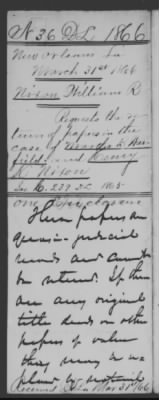 N 36 DL 1866
New Orleans La
March 31st 1866
Nixon William R
Requests the re
turn of papers in the
case of
field and Henry
R. Nixon
See 239 DL 1865
one Enclosure
These papers are
quasi-judicial
records and cannot
be returned. If there
are any original
title deeds or other
papers of value
they may be re
placed by
Received Mar 31st/66